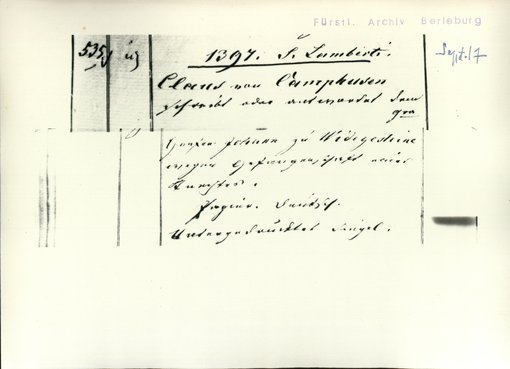 Fürstl. Archiv Berleburg
535 1397. S. Lamberti. Sept. 17
Claus von Camphusen
schreibt oder antwortet dem
Grafen Johann zu Widegesteine
wegen Gefangenschaft eines
Knechtes.
Papier. Deutsch.
Untergedrucktes Siegel.